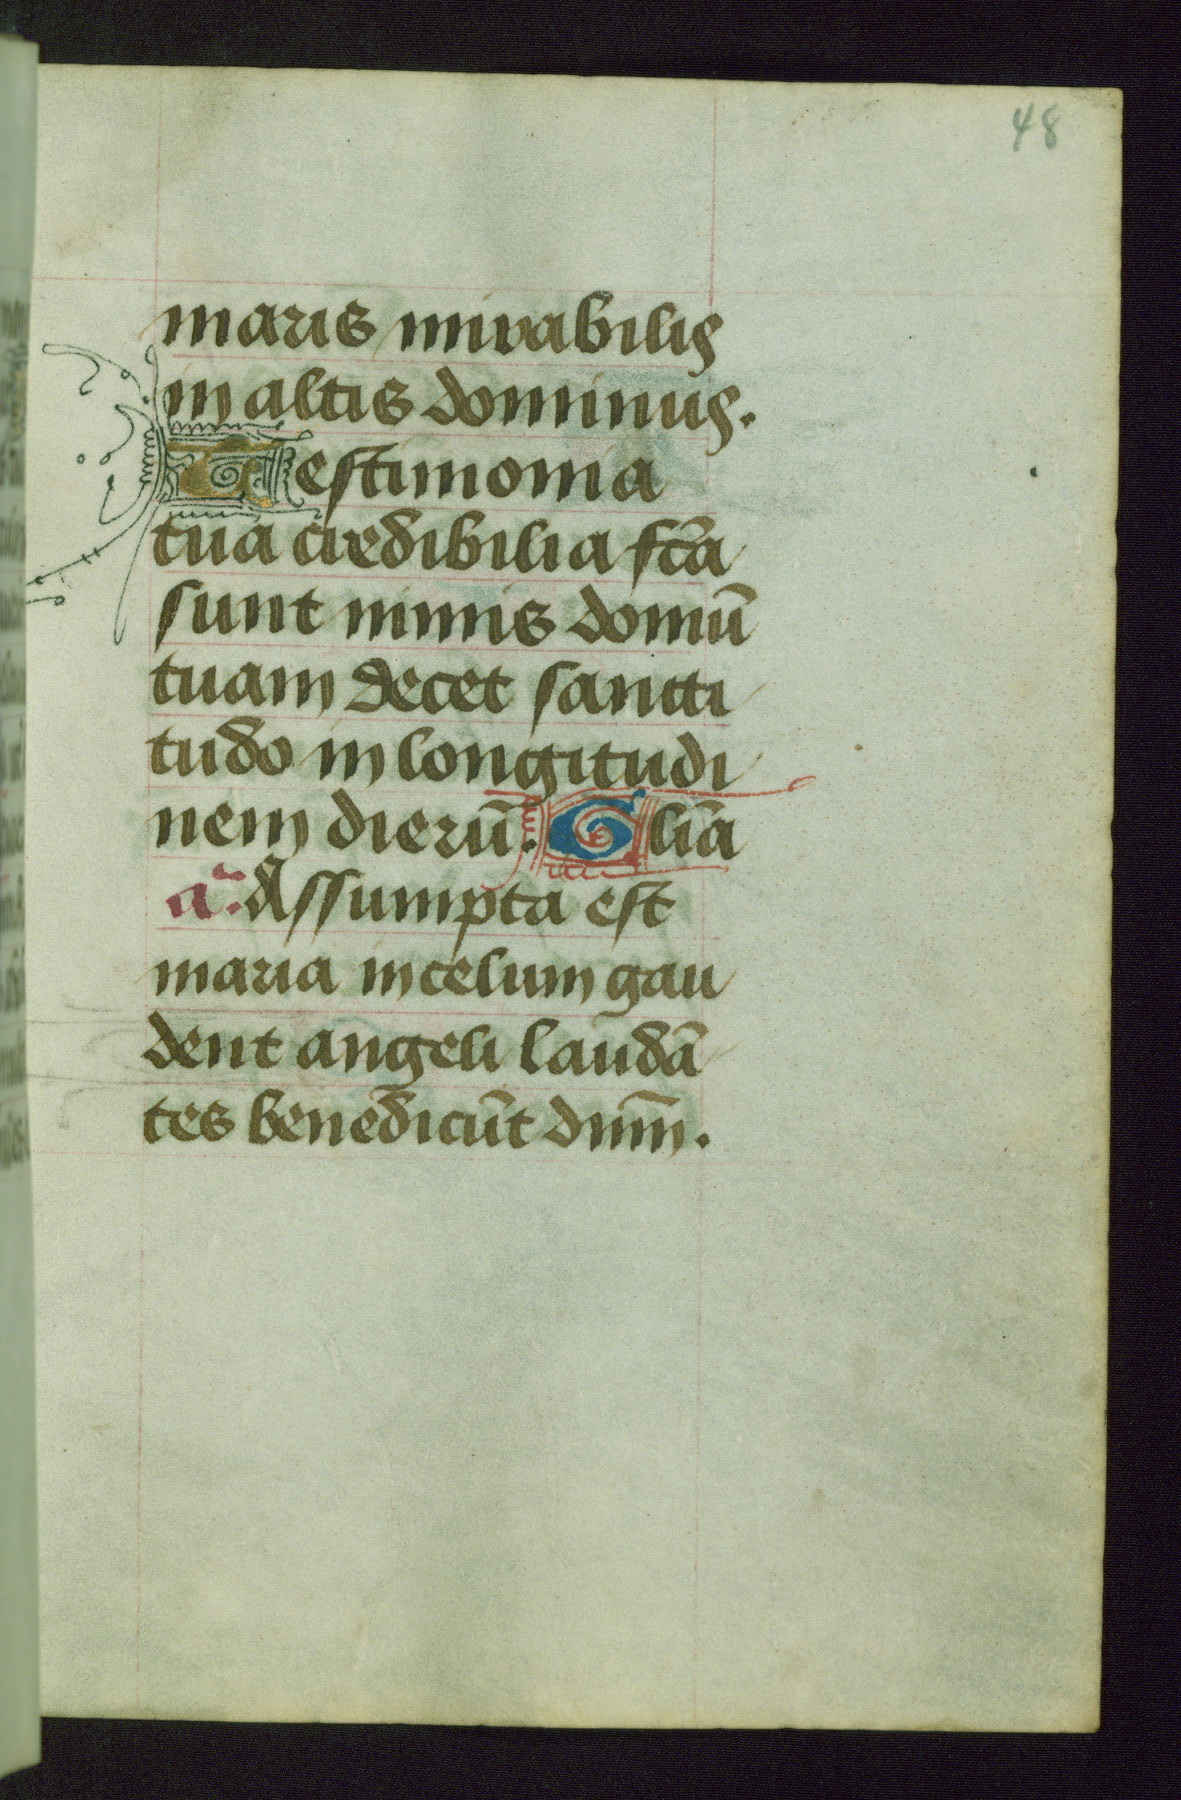 48
maris mirabilis
in altis dominus.
Testimonia
tua credibilia fc̄a
sunt nimis domū
tuam decet sancti
tudo in longitudi
nem dierū. Glīa
añ. Assumpta est
maria in celum gau
dent angeli laudā
tes benedicūt dn̄m.